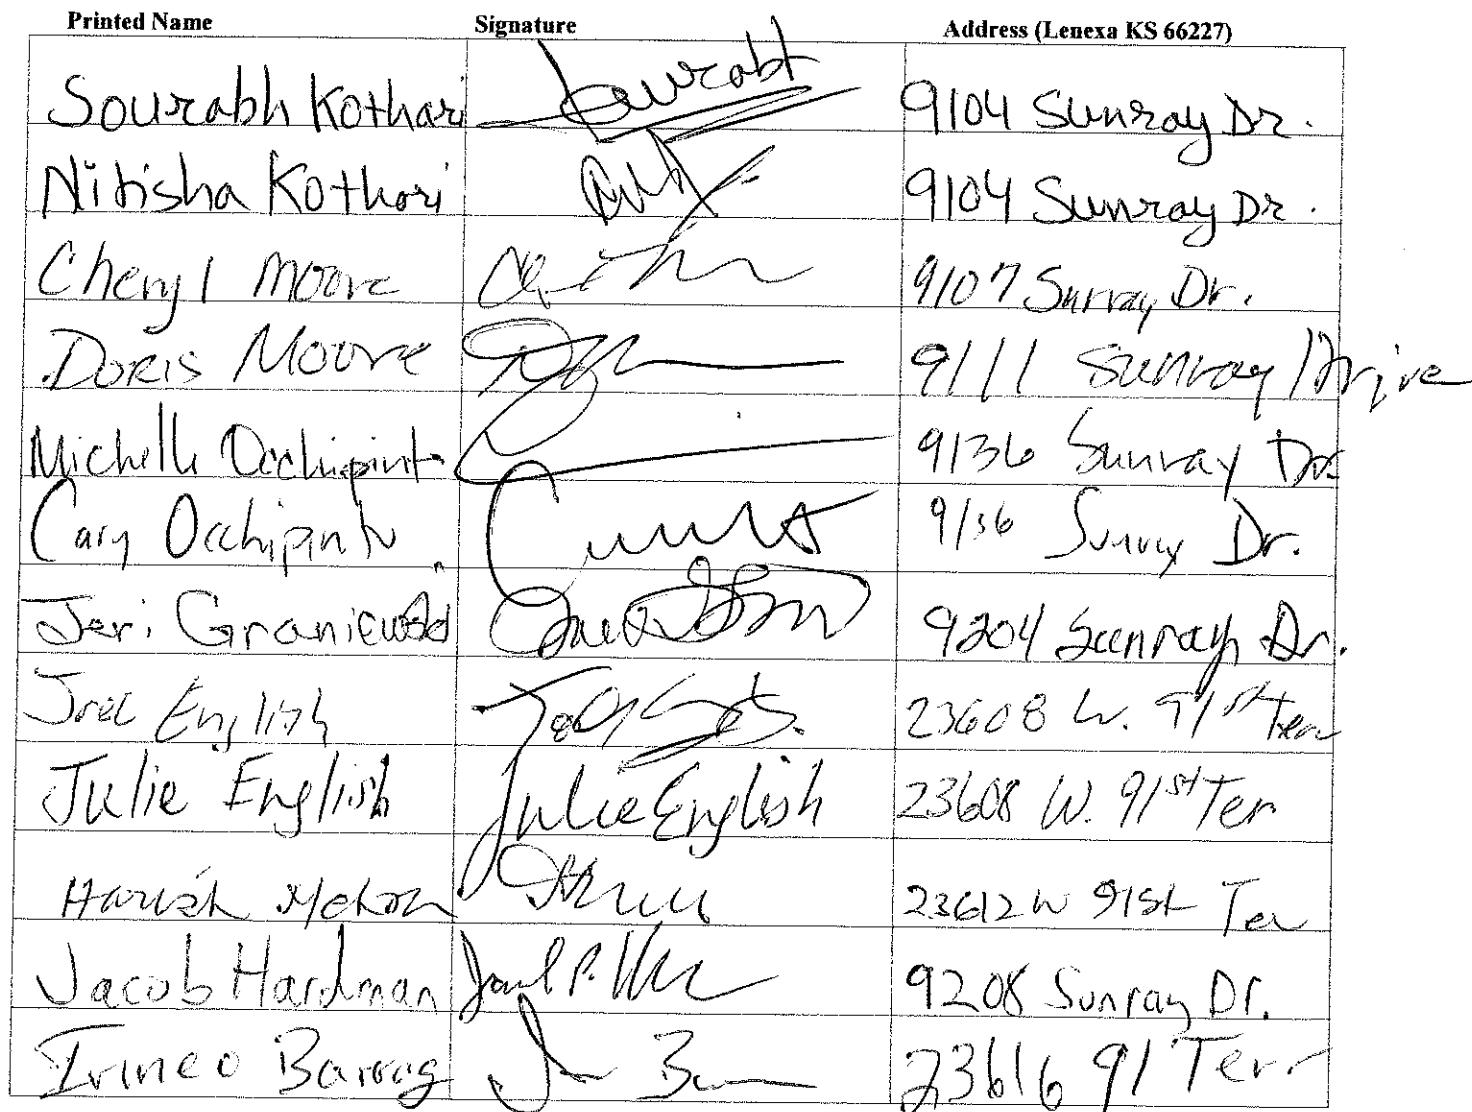 Printed Name Signature Address (Lenexa KS 66227)
Sourabh Kothari Sourabh 9104 Sunray Dr.
Nitisha Kothari 9104 Sunray Dr.
Cheryl Moore 9107 Sunray Dr.
Doris Moore 9111 Sunray Drive
Michelle Occhipinto 9136 Sunray Dr.
Cary Occhipinto 9136 Sunray Dr.
Jeri 9204 Sunray Dr.
Joel English 23608 W. 91st Terr
Julie English Julie English 23608 W. 91st Ter
Harish 23612 W 91st Ter
Jacob Hardman 9208 Sunray Dr.
Irineo 23616 91 Terr